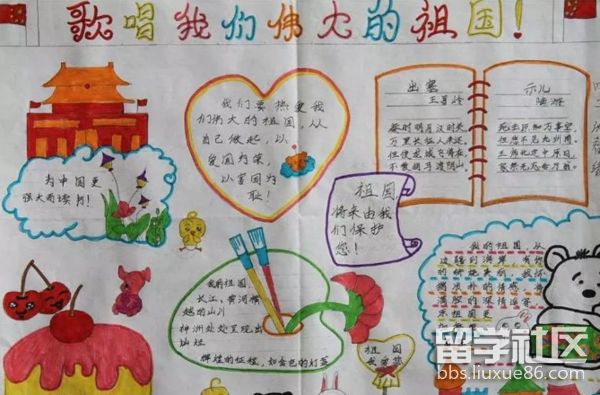 歌唱我们伟大的祖国!
为中国更
强大而读书!
我们要热爱我
们伟大的祖国,从
自己做起,以
爱国为荣,
以害国为
耻!
出塞
王昌龄
秦时明月汉时关,
万里长征人未还。
但使龙城飞将在,
不教胡马渡阴山。
示儿
陆游
死去元知万事空,
但悲不见九州同。
王师北定中原日,
家祭无忘告乃翁。
祖国
将来由我
们保护
您!
我的祖国,
长江,黄河横
越的山川
神洲处处呈现出
灿烂
辉煌的征程,如金色的灯盏
祖国
我爱您
我的祖国 从
留学社区
bbs.liuxue86.com